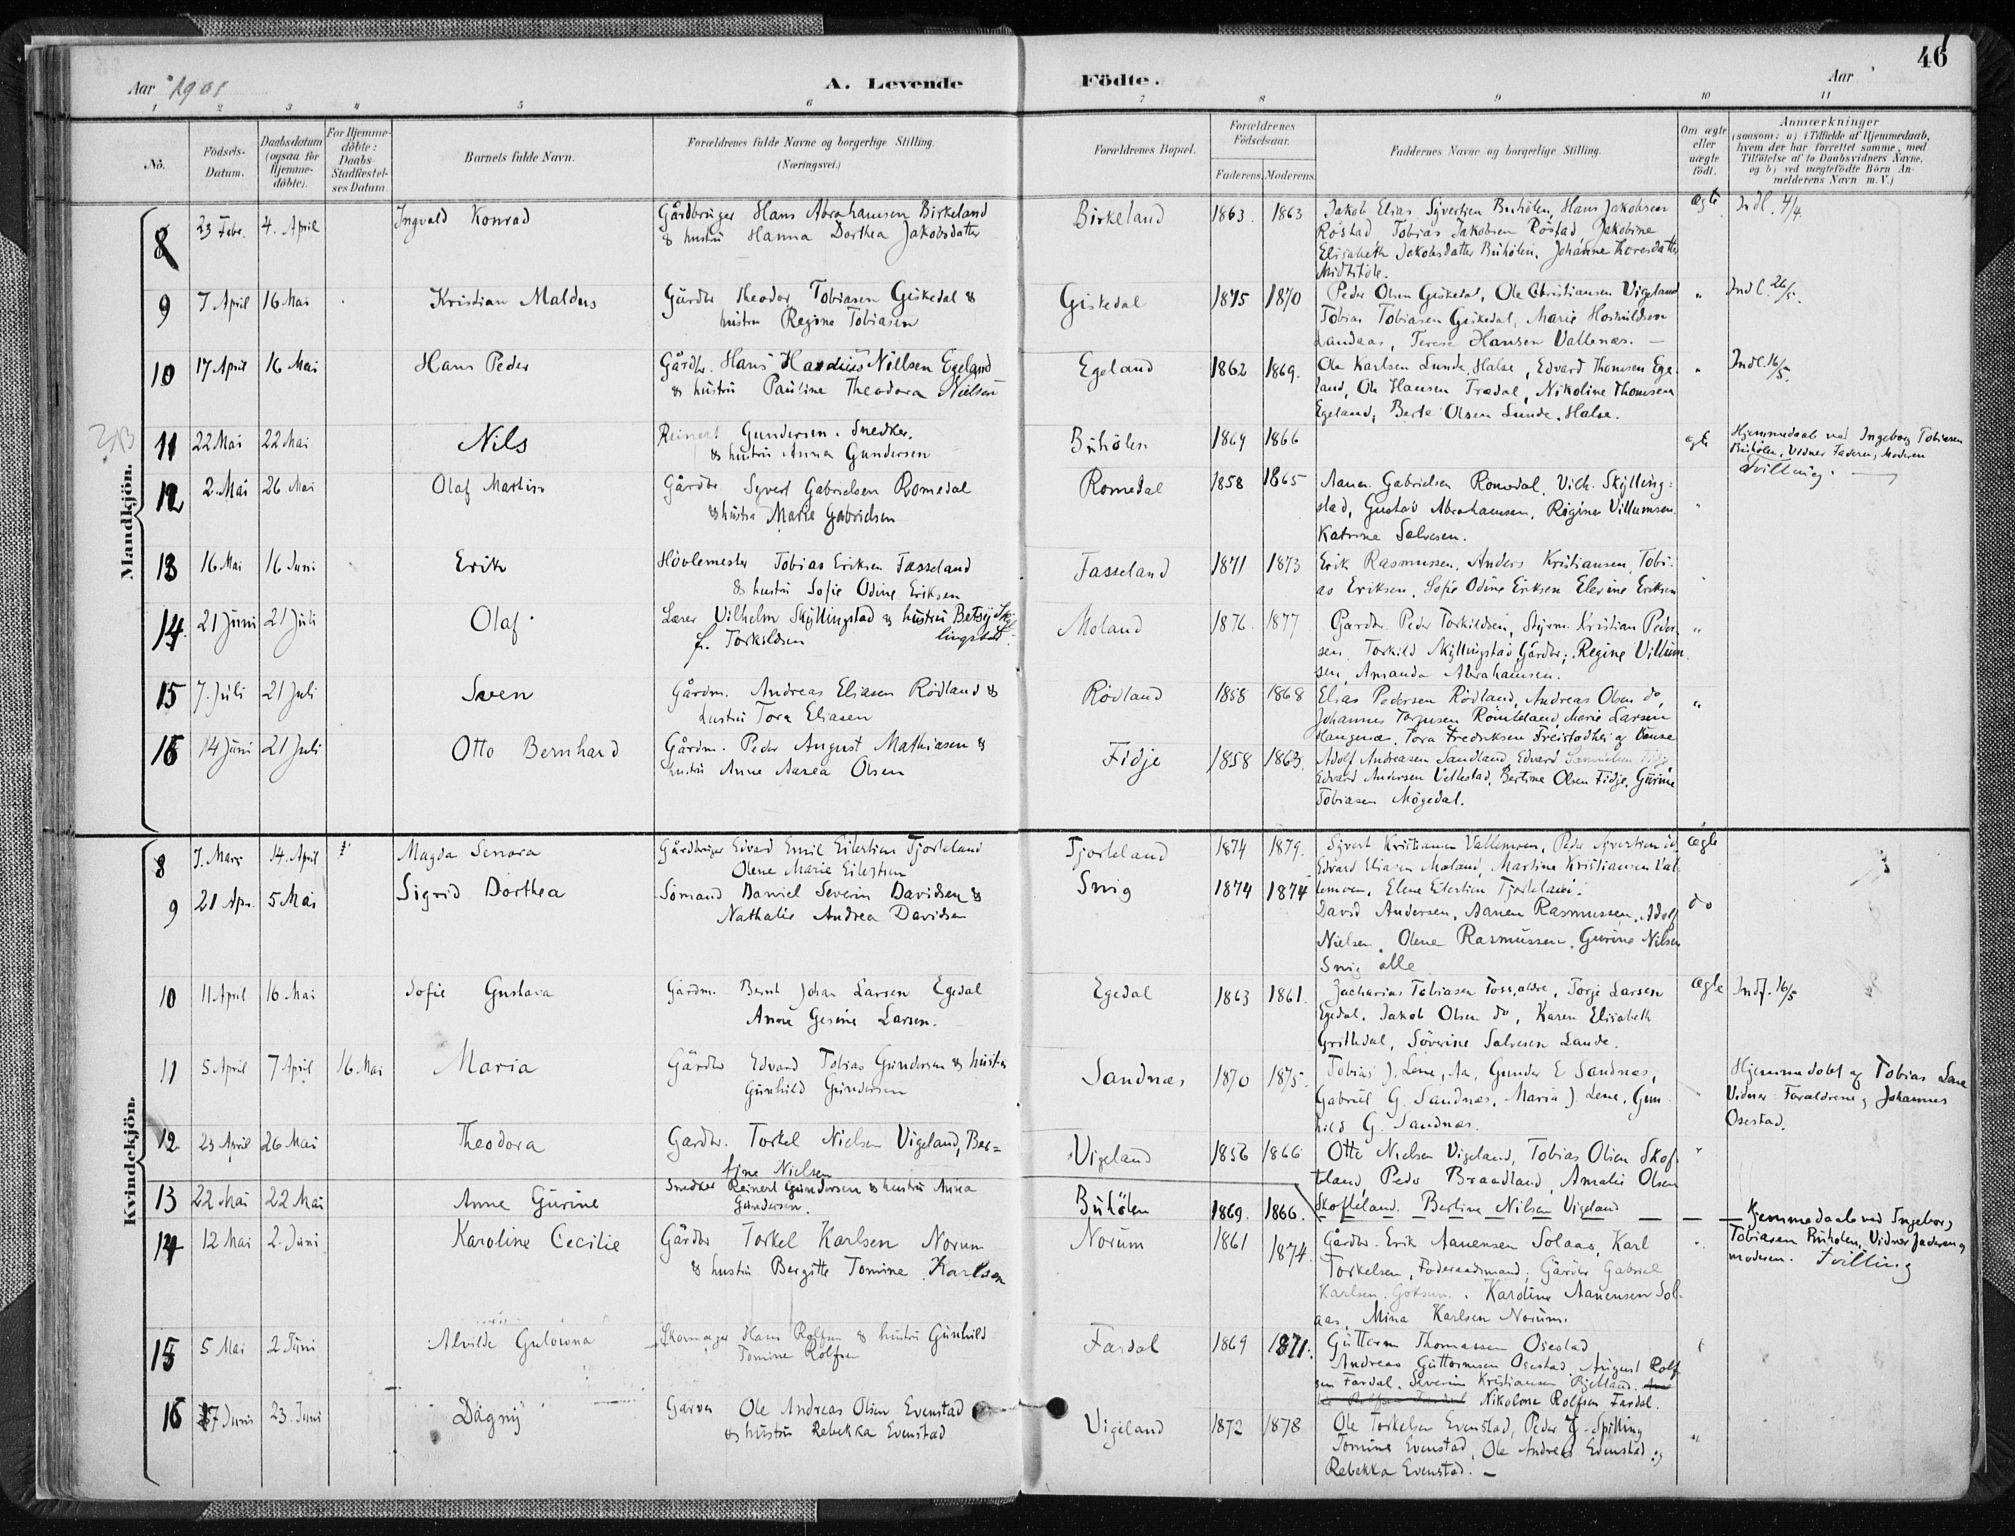 46
Aar 1901
A. Levende
Födte.
Aar
1 2 3 4 5 6 7 8 9 10 11
No.
Födsels-Datum.
Daabsdatum (ogsaa for Hjemme-döbte).
For Hjemme-döbte: Daabs-Stadfæstel-ses Datum
Barnets fulde Navn.
Forældrenes fulde Navne og borgerlige Stilling. (Næringsvei.)
Forældrenes Bopæl.
Forældrenes Födselsaar.
Faderens. Moderens.
Faddernes Navne og borgerlige Stilling.
Om ægte eller uægte födt.
Anmærkninger
(saasom: a) i Tilfælde af Hjemmedaab, hvem der har forrettet samme, med Tilföielse af to Daabsvidners Navne, og b) ved uægtefödte Börn Anmelderens Navn m. V.)
Mandkjön.
8 23 Febr. 4. April Ingvald Konrad Gårdbruger Hans Abrahamsen Birkeland Birkeland 1863. 1863 Jakob Elias Syvertsen Buhölen, Hans Jakobsen ægte Indl. 4/4.
& hustru Hanna Dorthea Jakobsdatter Röstad Tobias Jakobsen Röstad Jakobine
Elisabeth Jakobsdatter Buhölen, Johanne Theresdatter
9 7 April 16 Mai Kristian Maldus Gårdbr Theodor Tobiasen Giskedal & Giskedal 1875 1870 Peder Olsen Giskedal, Ole Christiansen Vigeland " Indl. 26/5.
hustru Regine Tobiasen Tobias Tobiasen Giskedal, Marie
Landaas, Terese Hansen Vallenæs. —
10 17 April 16 Mai Hans Peder Gårdbr. Hans Nillsen Egeland Egeland 1862 1869. Ole Karlsen Lunde, Halse, Edvard Thomsen Ege- " Indl. 16/5.
& hustru Pauline Theodora Nielsen land, Ole Hansen Trædal, Nikoline Thomsen
Egeland, Berte Olsen Lunde, Halse.
11 22 Mai 22 Mai Nils Reinert Gundersen. Snedker. Buhölen 1869 1866 ægte Hjemmedaab ved Ingeborg Tobiasen
& hustru Anna Gundersen Buhölen, Vidner Faderen, Moderen
Tvilling. —
12 2. Mai 26 Mai Olaf Martin Gårdbr. Syvert Gabrielsen Romedal Romedal 1858 1865 Aanen Gabrielsen Romedal, Vilh. Skylling-
& hustru Marie Gabrielsen stad, Gustav Abrahamsen, Regine Villumsen "
Katrine Salvesen.
13 16 Mai 16 Juni Erik Hövlemester Tobias Eriksen Fasseland Fasseland 1871 1873 Erik Rasmussen, Anders Kristiansen, Tobi-
& hustru Sofie Odine Eriksen as Eriksen, Sofie Odine Eriksen Elevine Eriksen "
14. 21 Juni 21 Juli Olaf Lærer Vilhelm Skyllingstad & hustru Betsy Skyl- Moland 1876. 1877 Gårdbr. Peder Torkildsen, Styrm. Kristian Peder- "
f. Torkildsen lingstad sen, Torkild Skyllingstad Gårdbr; Regine Villum-
sen, Amanda Abrahamsen.
15 7. Juli 21 Juli Sven Gårdm. Andreas Eliasen Rödland & Rödland 1858 1868 Elias Pedersen Rödland, Andreas Olsen do, "
hustru Tora Eliasen Johannes Torjusen Röinteland, Marie Larsen
Haugenæ, Tora Fredriksen
16 14 Juni 21 Juli Otto Bernhard Gårdm. Peder August Mathiasen & Fidje 1858 1863. Adolf Andreasen Sandland, Edvard
hustru Anne Aasea Olsen Edvard Andersen Vellestad, Bertine Olsen Fidje, Gurine
Tobiasen Mögedal.
Kvindekjön.
8 7. Mars 14. April Magda Senora Gårdbruger Edvard Emil Eilertsen Tjorteland Tjorteland 1874 1879. Syvert Kristiansen Vallemoen, Peder Syvertsen ægte
Olene Marie Eilertsen Edvard Eliasen Moland, Martine Kristiansen Val-
lemoen, Elene Eilertsen Tjorteland.
9 21 Apr. 5 Mai Sigrid Dorthea Sömand Daniel Severin Davidsen & Snig 1874 1874 David Andersen, Aanen Rasmussen, Adolf do
Nathalie Andrea Davidsen Nielsen, Olena Rasmussen, Gurine Nilsen
Snig alle
10 11 April 16 Mai Sofie Gustava Gårdm. Bernt Johan Larsen Egedal Egedal 1863 1861. Zacharias Tobiasen, Torje Larsen ægte Indf. 16/5
Anne Gesine Larsen. Egedal, Jakob Olsen do, Karen Elisabeth
Gritledal, Söverine Salvesen Lande.
11 5 April 7 April 16 Mai Maria Gårdbr Edvard Tobias Gundersen & hustru Sandnæs 1870 1875. Tobias J. Lene, Aa. Gunder E Sandnæs, " Hjemmedöbt af Tobias Lene
Gunhild Gundersen Gabriel G. Sandnæs, Maria J. Lene, Gun- Vidner Forældrene, Johannes
hild G. Sandnæs. Osestad.
12 23 April 26 Mai Theodora Gårdbr. Torkel Nielsen Vigeland, Ber- Vigeland 1856 1866 Otte Nielsen Vigeland, Tobias Olsen Skof- "
tine Nielsen teland, Peder Braadland, Amalie Olsen
13 22 Mai 22 Mai Anne Gurine Snedker Reinert Gundersen & hustru Anna Buhölen 1869. 1866. Skofteland. Bertine Nilsen Vigeland — — Hjemmedaab ved Ingeborg
Gundersen. Tobiasen Buholen, Vidner faderen og
moderen. Tvilling
14 12 Mai 2. Juni Karoline Cecilie Gårdbr Torkel Karlsen Norum Norum 1861 1874. Gårdbr. Erik Aanensen Solaas, Karl "
& hustru Bergitte Tomine Karlsen Torkelsen, Föderaadsmand; Gårdbr Gabriel
Karlsen. Karoline Aanensen Sol-
aas, Mina Karlsen Norum.
15 5 Mai 2 Juni Alvilde Gulowna Skomager Hans Rolfsen & hustru Gunhild Fardal 1869 1871. Guttorm Thomassen Osestad
Tomine Rolfsen Andreas Guttormsen Osestad, August Rolf-
sen Fardal. Severin Kristiansen
Nikoline Rolfsen Fardal.
16 17 Juni 23. Juni Dagny Garver Ole Andreas Olsen Evenstad Vigeland 1872 1878 Ole Torkelsen Evenstad, Peder T. Spilling "
& hustru Rebekka Evenstad Tomine Evenstad, Ole Andreas Evenstad og
Rebekka Evenstad. —